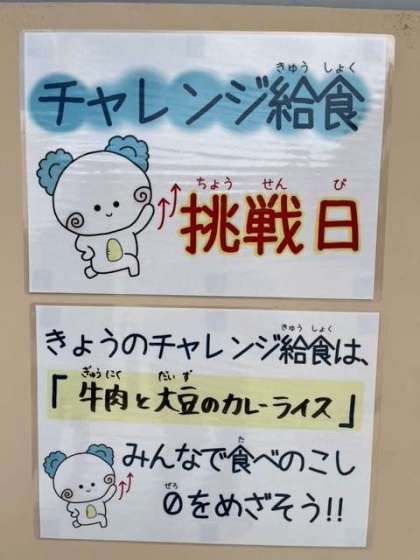 きゅう しょく
チャレンジ給食
ちょう せん び
挑戦日
きゅう しょく
きょうのチャレンジ給食は、
ぎゅう にく だい ず
「牛肉と大豆のカレーライス」
た
みんなで食べのこし
ぜろ
0をめざそう!!